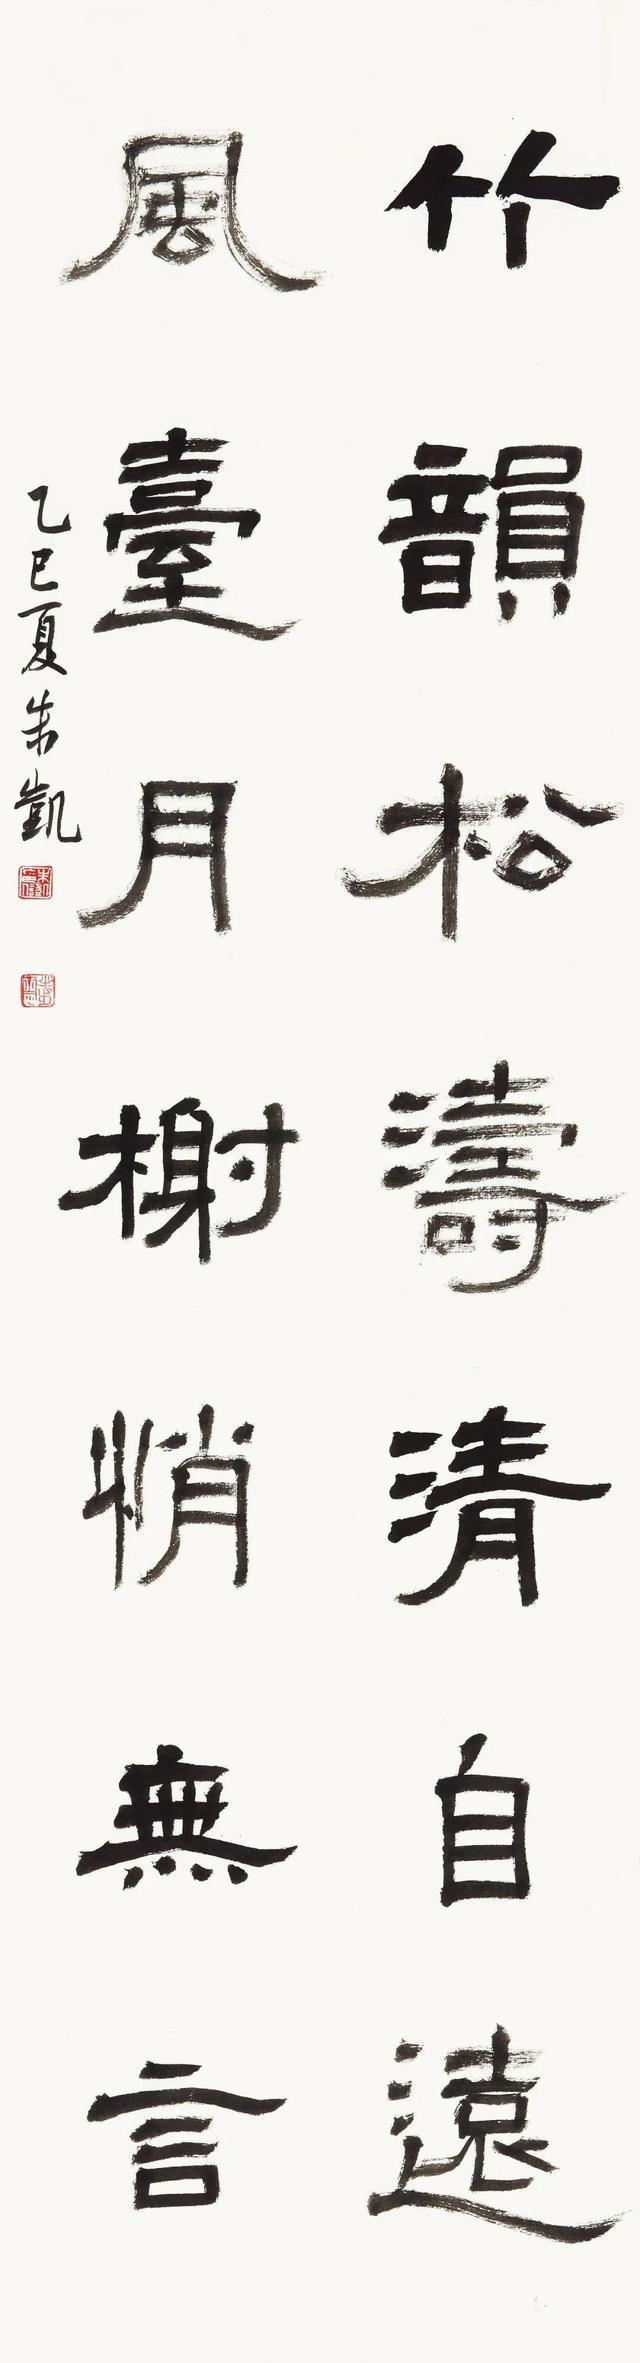 竹韻松濤清自遠
風臺月榭悄無言
乙巳夏朱凱